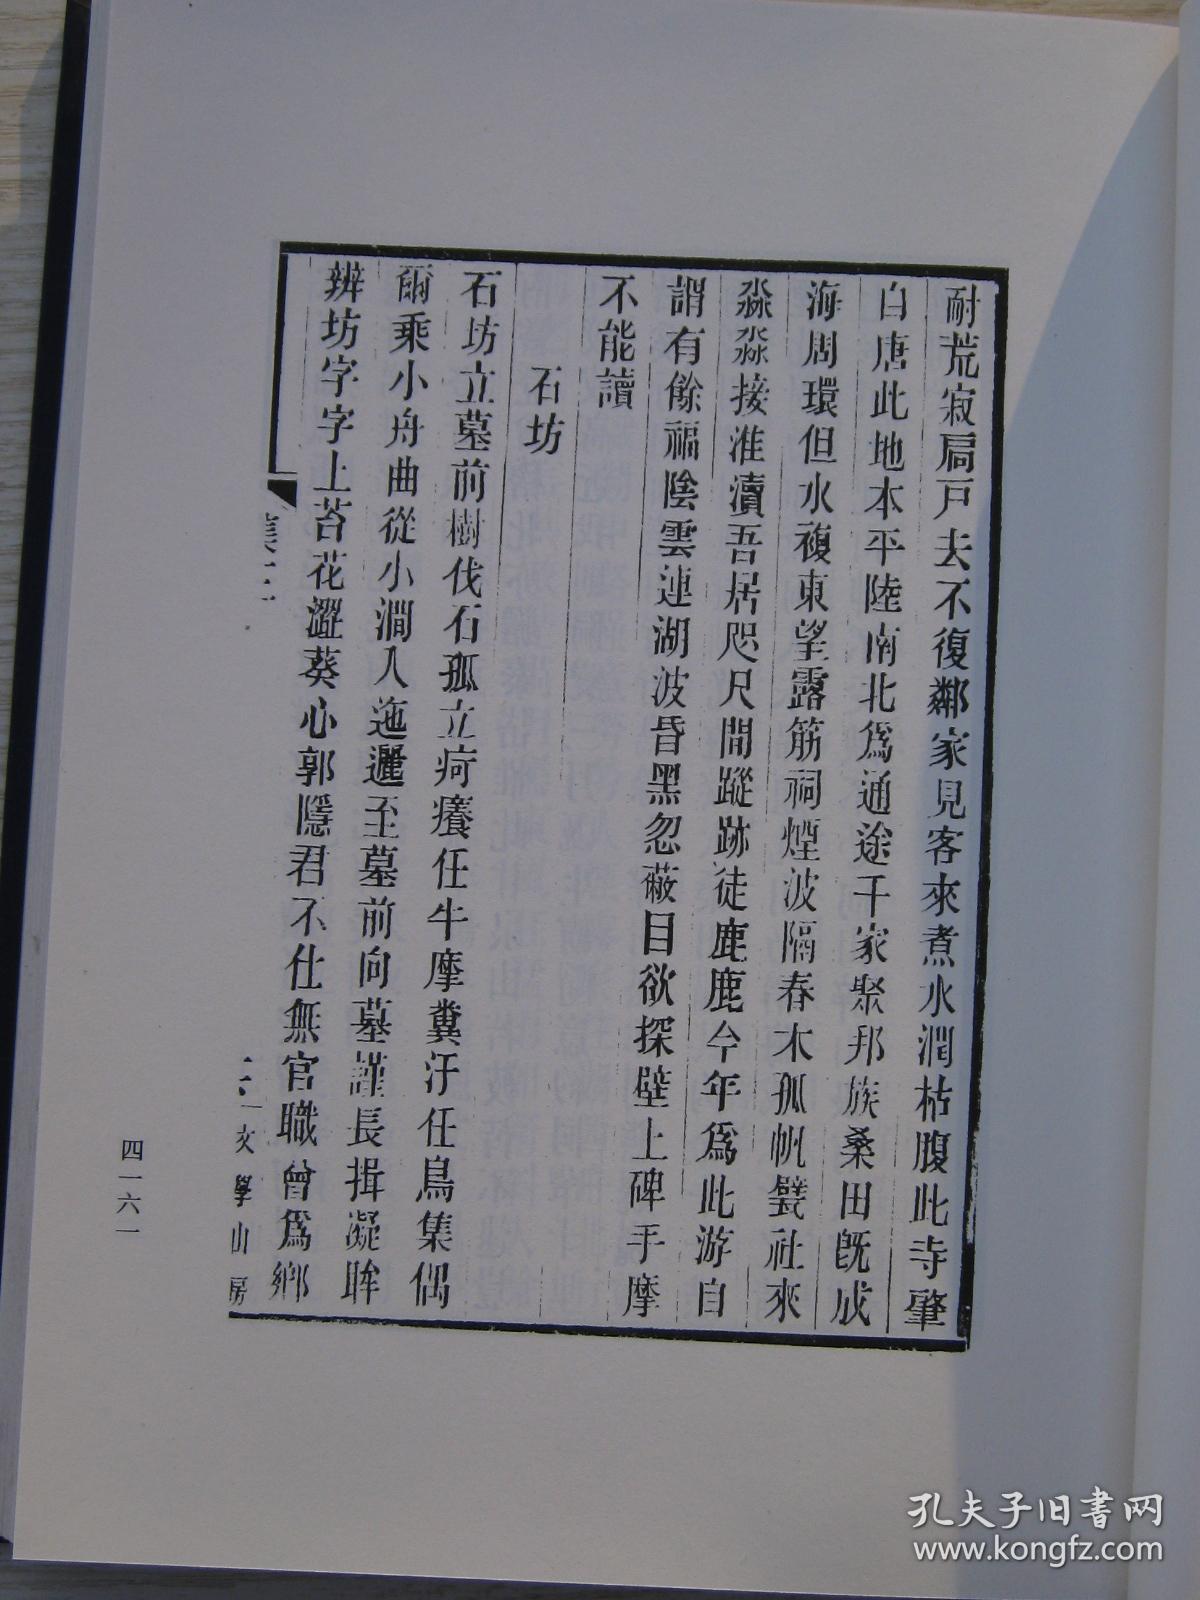 耐荒寂扃戸去不復鄰家見客來煮水潤枯腹此寺肇
白唐此地本平陸南北爲通途千家聚邦族桑田旣成
海周環但水複東望露筋祠煙波隔春木孤帆甓社來
淼淼接淮瀆吾居咫尺間蹤跡徒鹿鹿今年爲此游自
謂有餘福陰雲連湖波昏黑忽蔽目欲探壁上碑手摩
不能讀
石坊
石坊立墓前樹伐石孤立疴癢任牛摩糞汙任鳥集偶
爾乘小舟曲從小澗入迤邐至墓前向墓謹長揖凝眸
辨坊字字上苔花澀葵心郭隱君不仕無官職曾爲鄉
集
文學山房
四一六一
孔夫子旧书网
www.kongfz.com